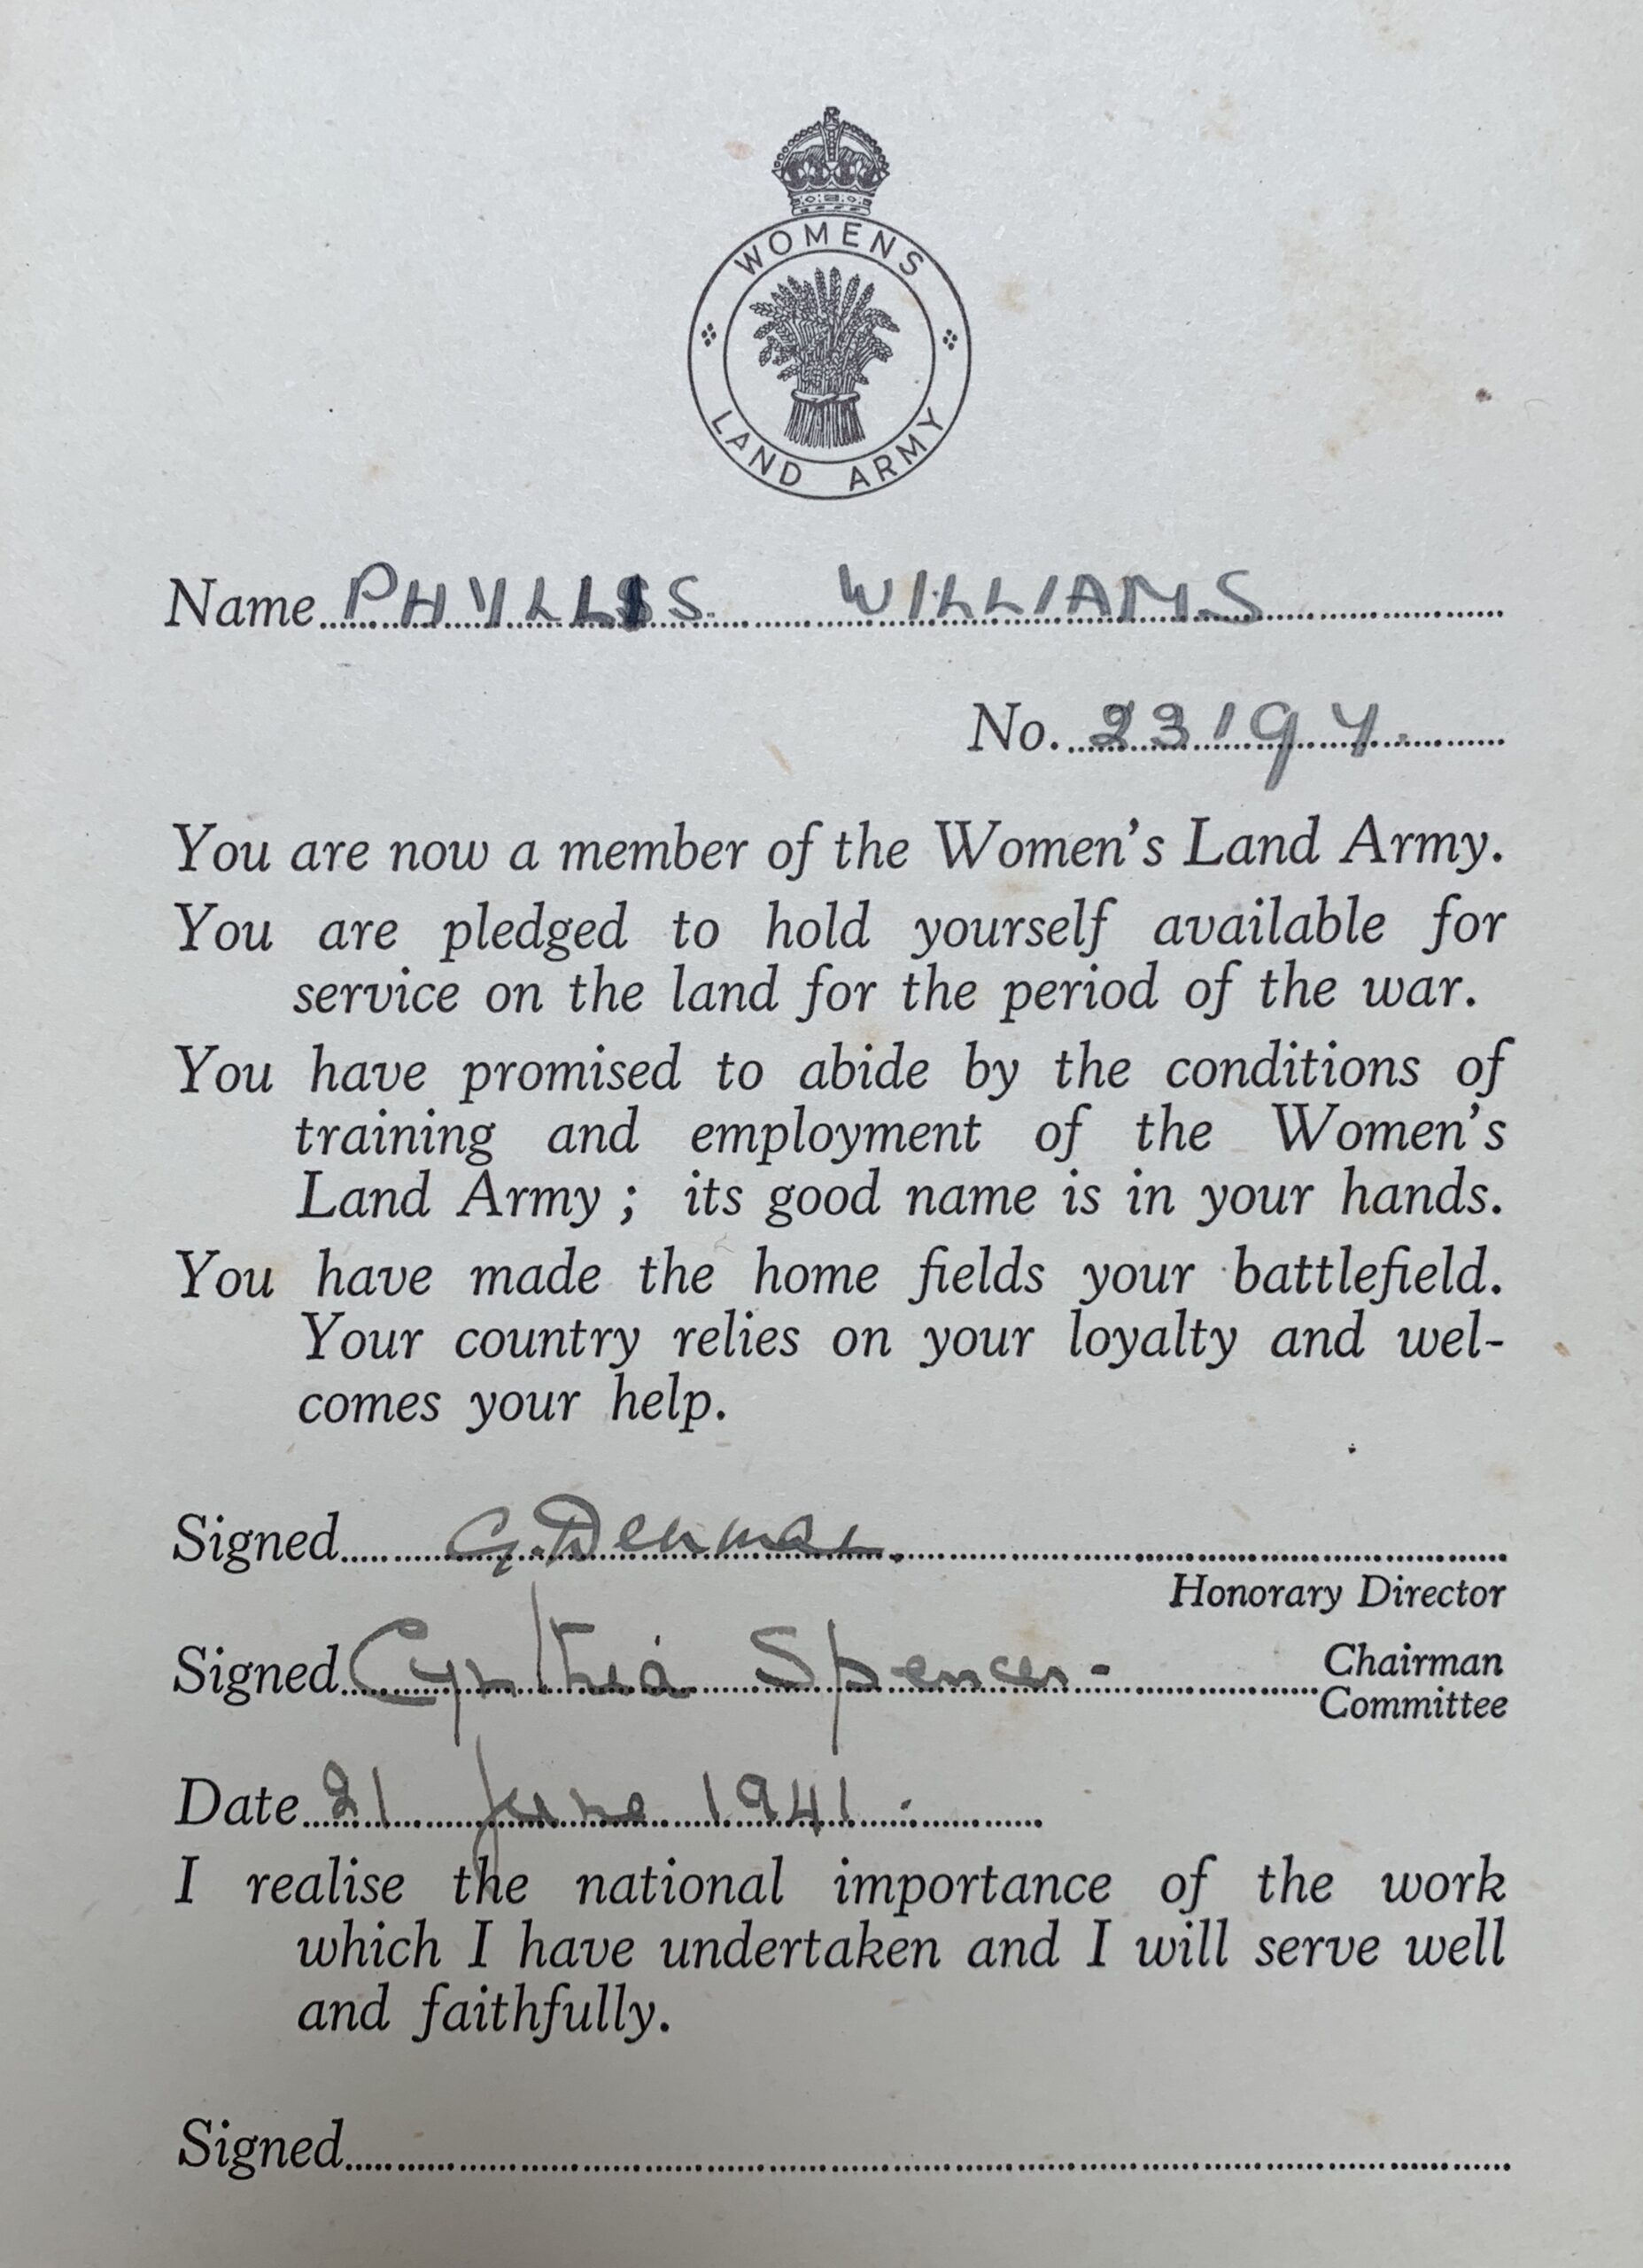 WOMENS
LAND ARMY
Name PHYLLIS WILLIAMS
No. 23194.
You are now a member of the Women's Land Army.
You are pledged to hold yourself available for
service on the land for the period of the war.
You have promised to abide by the conditions of
training and employment of the Women's
Land Army ; its good name is in your hands.
You have made the home fields your battlefield.
Your country relies on your loyalty and wel-
comes your help.
Signed G. Denman.
Honorary Director
Signed Cynthia Spencer - Chairman
Committee
Date 21 June 1941.
I realise the national importance of the work
which I have undertaken and I will serve well
and faithfully.
Signed